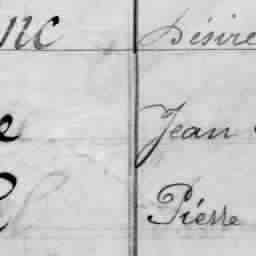 nc Désiré
e Jean
Piérre